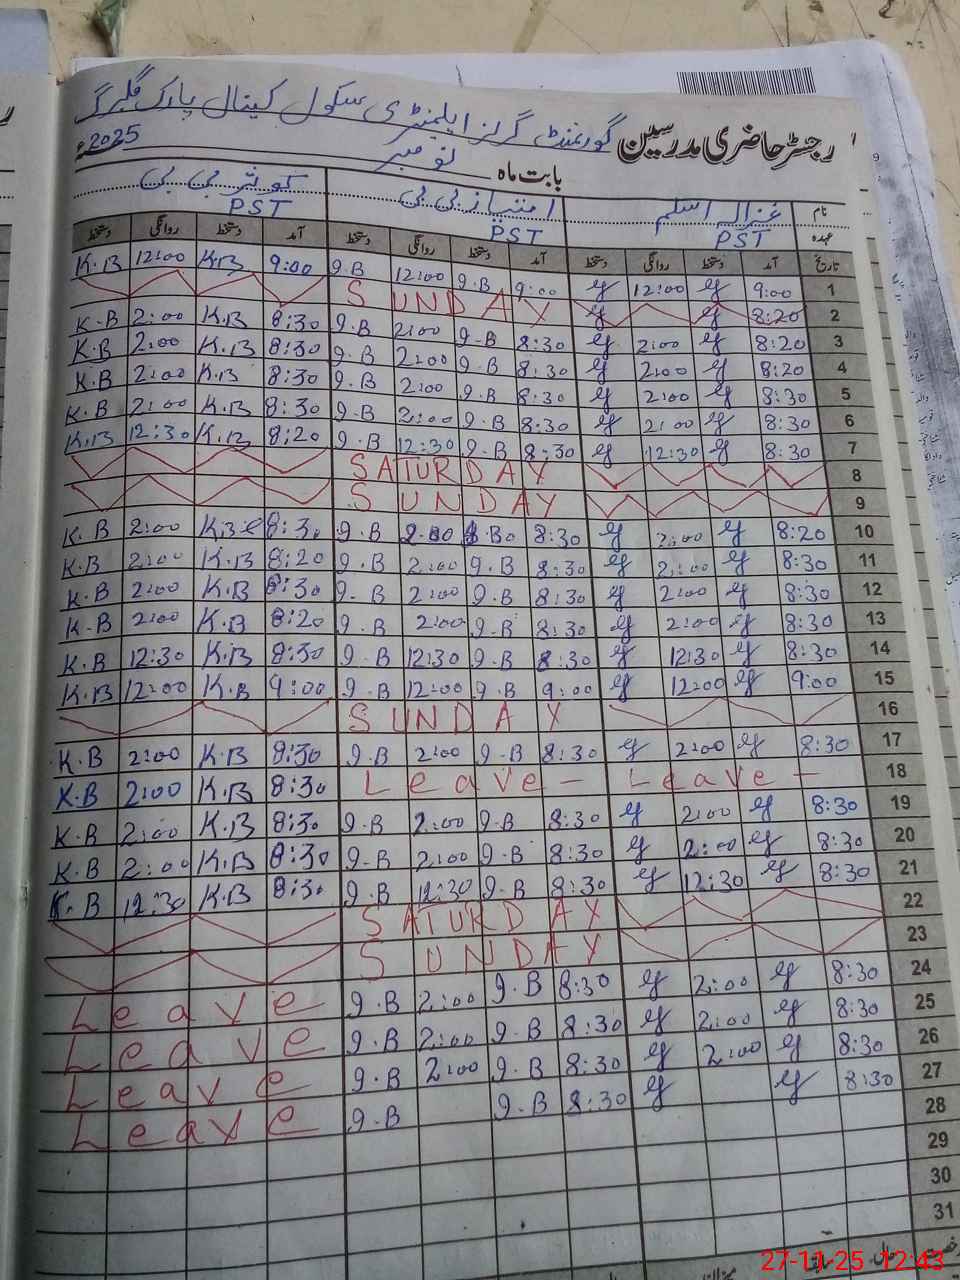 رجسٹر حاضری مدرسین گورنمنٹ گرلز ایلیمنٹری سکول کینال پارک گلبرگ
بابت ماہ نومبر 2025ء
نام غزالہ اسلم امتیاز بی بی کوثر بی بی
عہدہ PST PST PST
تاریخ آمد دستخط روانگی دستخط آمد دستخط روانگی دستخط آمد دستخط روانگی دستخط
K.B 12:00 K.B 9:00 9.B 12:00 9.B 9:00 12:00 9:00 1
SUNDAY 8:20 2
K.B 2:00 K.B 8:30 9.B 2:00 9.B 8:30 2:00 8:20 3
K.B 2:00 K.B 8:30 9.B 2:00 9.B 8:30 2:00 8:20 4
K.B 2:00 K.B 8:30 9.B 2:00 9.B 8:30 2:00 8:30 5
K.B 2:00 K.B 8:30 9.B 2:00 9.B 8:30 2:00 8:30 6
K.B 12:30 K.B 8:20 9.B 12:30 9.B 8:30 12:30 8:30 7
SATURDAY 8
SUNDAY 9
K.B 2:00 8:30 9.B 2:00 8:30 2:00 8:20 10
K.B 2:00 K.B 8:20 9.B 2:00 9.B 8:30 2:00 8:30 11
K.B 2:00 K.B 8:30 9.B 2:00 9.B 8:30 2:00 8:30 12
K.B 2:00 K.B 8:20 9.B 2:00 9.B 8:30 2:00 8:30 13
K.B 12:30 K.B 8:30 9.B 12:30 9.B 8:30 12:30 8:30 14
K.B 12:00 K.B 9:00 9.B 12:00 9.B 9:00 12:00 9:00 15
SUNDAY 16
K.B 2:00 K.B 8:30 9.B 2:00 9.B 8:30 2:00 8:30 17
K.B 2:00 K.B 8:30 Leave - Leave - 18
K.B 2:00 K.B 8:30 9.B 2:00 9.B 8:30 2:00 8:30 19
K.B 2:00 K.B 8:30 9.B 2:00 9.B 8:30 2:00 8:30 20
K.B 12:30 K.B 8:30 9.B 12:30 9.B 8:30 12:30 8:30 21
SATURDAY 22
SUNDAY 23
Leave 9.B 2:00 9.B 8:30 2:00 8:30 24
Leave 9.B 2:00 9.B 8:30 2:00 8:30 25
Leave 9.B 2:00 9.B 8:30 2:00 8:30 26
Leave 9.B 9.B 8:30 8:30 27
28
29
30
31
27-11-25 12:43